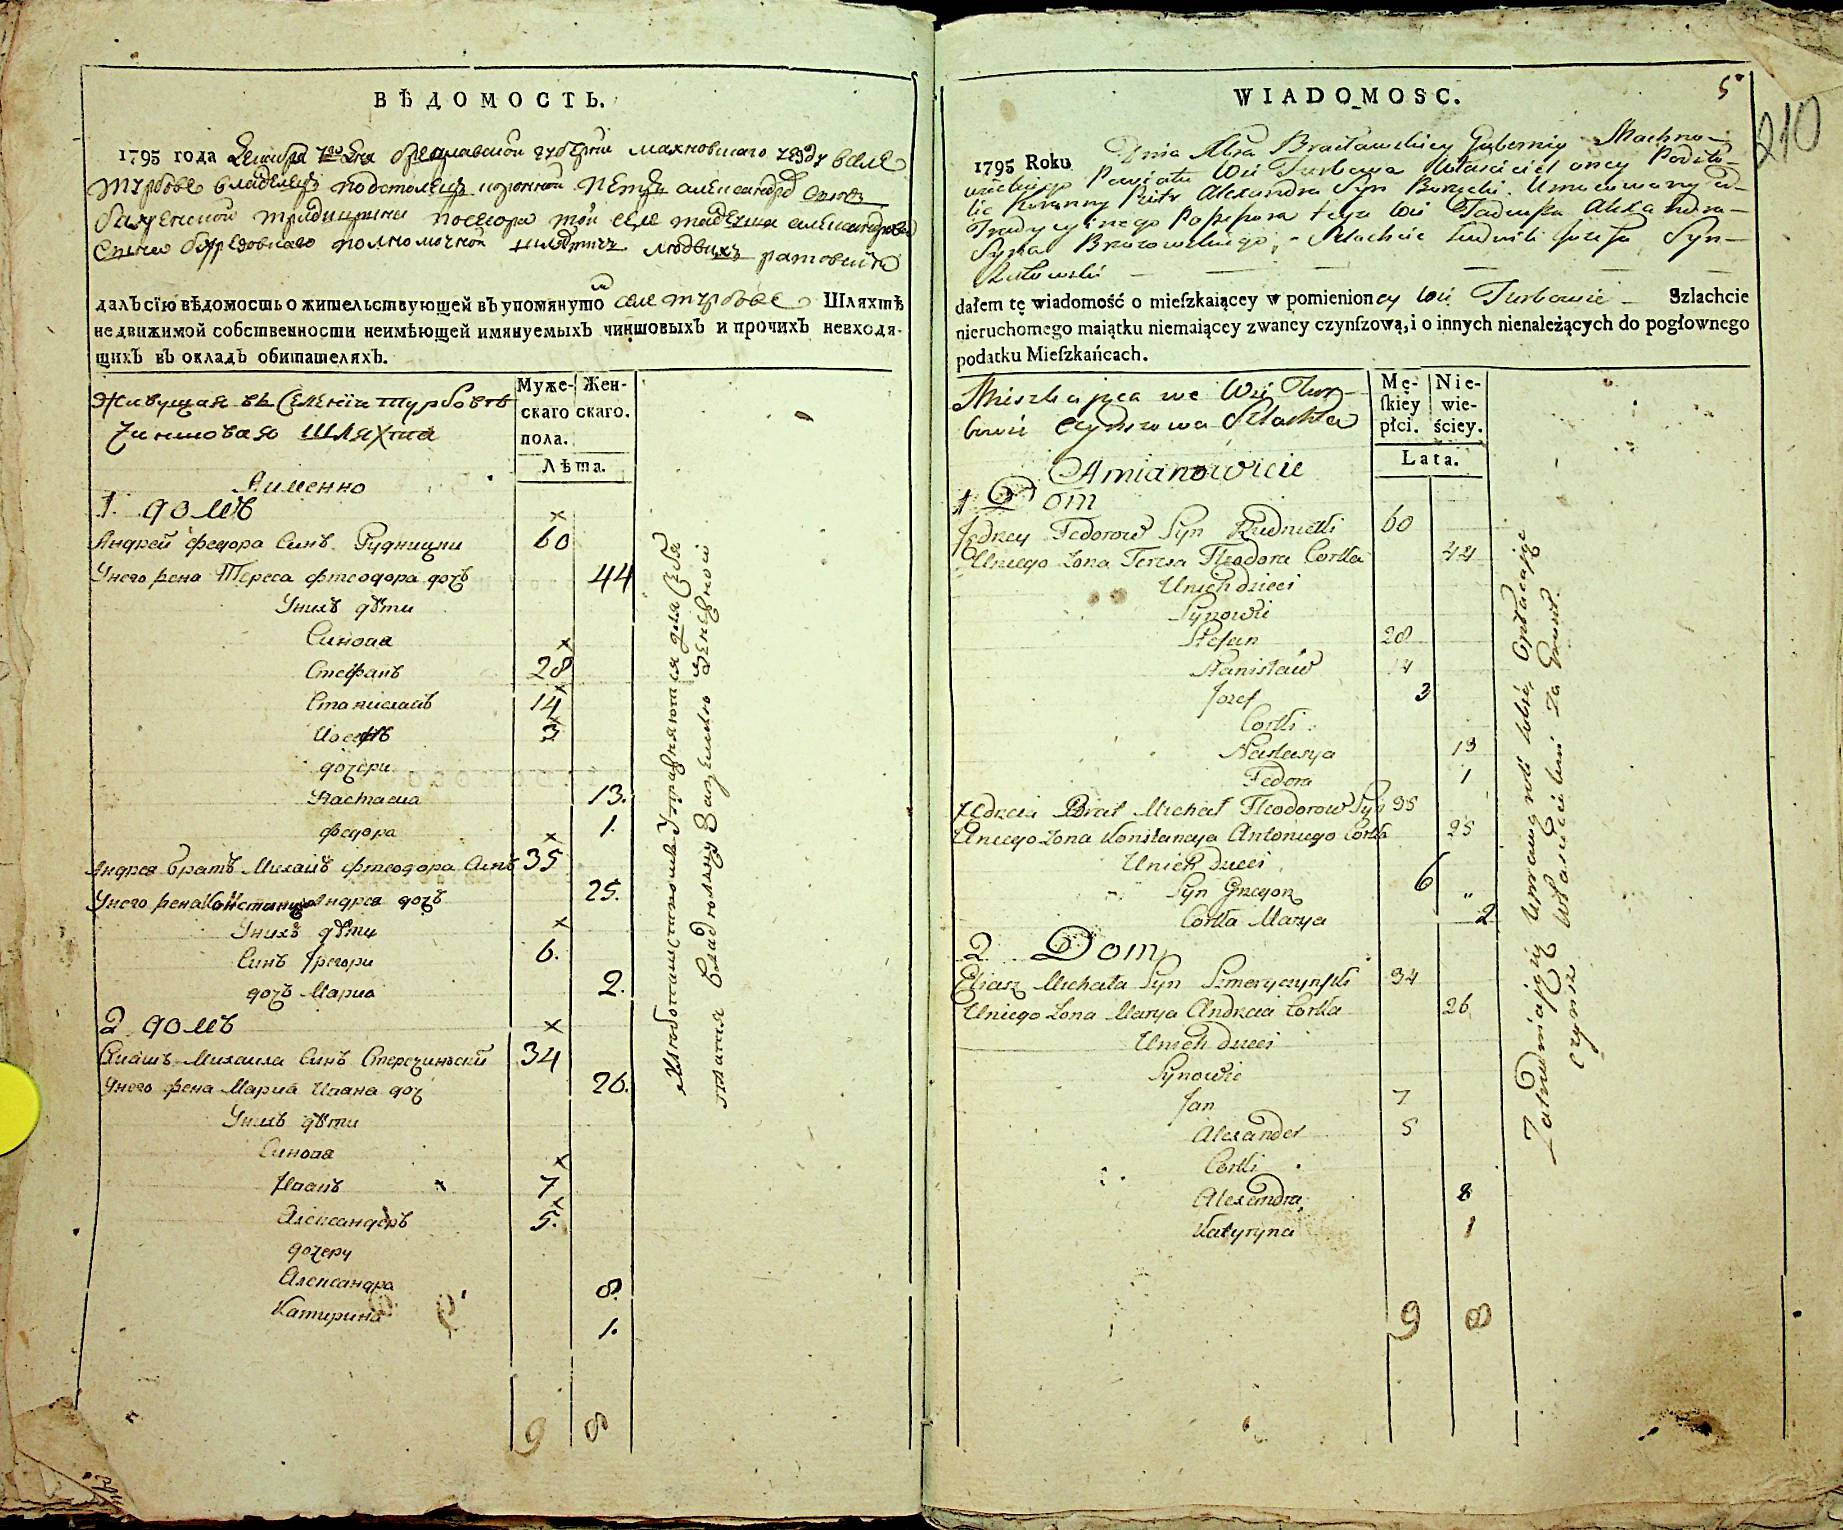 ВѢДОМОСТЬ.
1795 года Декабря дня брацлавской губернии махновского уезду в селе
Турбове владелец подстолец коронной Петр александров сын
традицыины посесора той села Тадеуша александрова
сына полномочной шляхтич людвихъ ратовский
далъ сїю вѣдомость о жительствующей въ упомянуто селе турбове Шляхтѣ
недвижимой собственности неимѣющей имянуемыхъ чиншовыхъ и прочихъ невходя-
щихъ въ окладъ обитателяхъ.
Живущая въ Селенїи турбовѣ
чиншовая шляхта
Аименно
Муже- скаго пола.
Жен- скаго.
Лѣта.
1. домъ
Андрей федора Синъ Рудницки 60
Унего жена Тереса фтеодора дочъ 44
Унихъ дѣти
Синова
Стефанъ 28
Станиславъ 14
Иосефъ 3
дочери
Настасиа 13.
федора 1.
Андрея братъ Михаилъ фтеодора Синъ 35
Унего жена Констанция Андрея дочъ 25.
Унихъ дѣти
Синъ Грегори 6.
дочъ Мариа 2.
2 домъ
Елиашъ Михаила Синъ 34
Унего жена Мариа Ивана доч 26.
Унихъ дѣти
Синова
Иванъ 7
Александеръ 5.
дочеру
Александра 8.
Катирина 1.
9 8
WIADOMOSC.
5
210
1795 Roku Dnia Msca Bracławskiey Guberniy Machno-
wieckiego Powiatu Wsi Turbowa Właściciel oney Podsto-
lic Koronny Piotr Alexandra Syn Umocowany od
Tradycyinego Possessora teyże Wsi Tadeusza Alexandra
Syna Brzozowskiego, Szlachcic Ludwik Jozefa Syn
Ratowski
dałem tę wiadomość o mieſzkaiącey w pomienioney wsi Turbowie Szlachcie
nieruchomego maiątku niemaiącey zwaney czynſzową, i o innych nienależących do pogłownego
podatku Mieſzkańcach.
Mieszkająca we Wsi Tur-
bowie Czynszowa Szlachta
Amianowicie
Mę- ſkiey płci.
Nie- wie- ściey.
Lata.
1 Dom
Jędrzey Fedorow Syn Rudnicki 60
Uniego Zona Teresa Fteodora Corka 44
Unich dzieci
Synowie
Stefan 28
Stanisław 14
Jozef 3
Corki
Nastasya 13
Fedora 1
Jędrzeia Brat Michał Fteodorow Syn 35
Uniego Zona Konstancya Antoniego Corka 25
Unich dzieci
Syn Grzegorz 6 "
Corka Marya 2
2 Dom
Eliasz Michała Syn Szmeryczynski 34
Uniego Zona Marya Andrzeia Corka 26
Unich dzieci
Synowie
Jan 7
Alexander 5
Corki
Alexandra, 8
Katyryna 1
9 8
Zatrudniaiący się uprawą roli sobie, opłacaiące
czynsz Właścicielowi za Grunt.